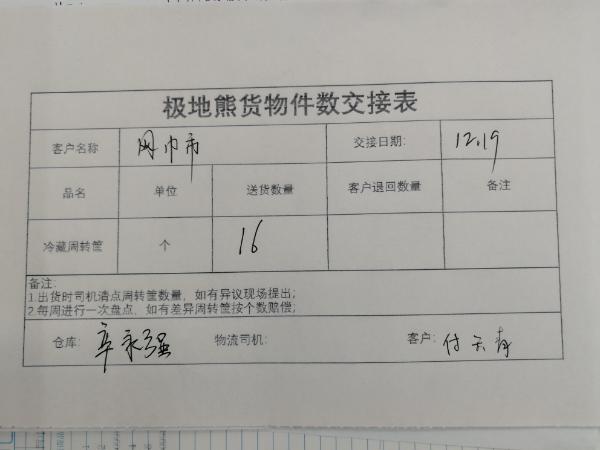 极地熊货物件数交接表
客户名称 网巾市 交接日期: 12.19
品名 单位 送货数量 客户退回数量 备注
冷藏周转筐 个 16
备注:
1.出货时司机清点周转筐数量，如有异议现场提出;
2.每周进行一次盘点，如有差异周转筐按个数赔偿;
仓库: 辛永强 物流司机: 客户: 付云青